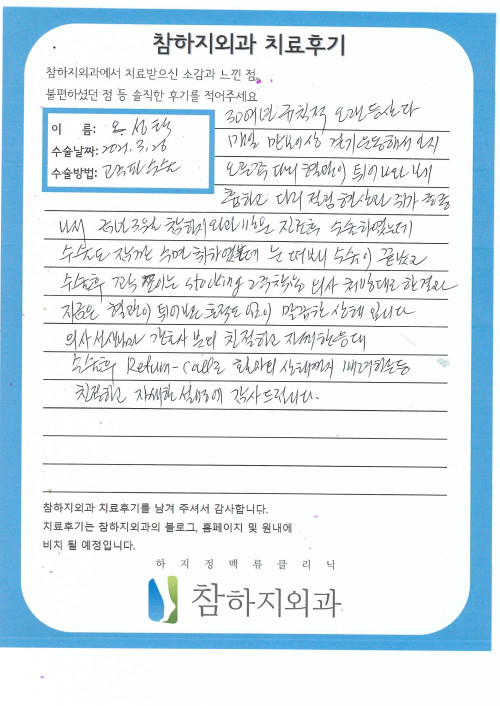 참하지외과 치료후기
참하지외과에서 치료받으신 소감과 느낀 점,
불편하셨던 점 등 솔직한 후기를 적어주세요
이 름: 오
수술날짜: 2021. 3. 26
수술방법: 수술
30여년 규칙적 오래 등산과
매일 만보이상 걷기운동해서 인지
오른쪽 다리 혈관이 튀어나와 보기
흉하고 다리 저림 현상과 쥐가 종종
나서 금년 3월 참하지외과 진료후 수술하였는데
수술도 잠깐 수면 취하였는데 눈 떠보니 수술이 끝났고
수술후 꼭 stocking 2주착용 의사 처방대로 한결과
지금은 혈관이 튀어나온 흔적도 없이 말끔한 상태 입니다
의사선생님과 간호사 분의 친절하고 자세한응대
수술후 Return-call로 환자의 상태까지 배려해주는등
친절하고 자세한 설명에 감사드립니다.
참하지외과 치료후기를 남겨 주셔서 감사합니다.
치료후기는 참하지외과의 블로그, 홈페이지 및 원내에
비치 될 예정입니다.
하지정맥류클리닉
참하지외과